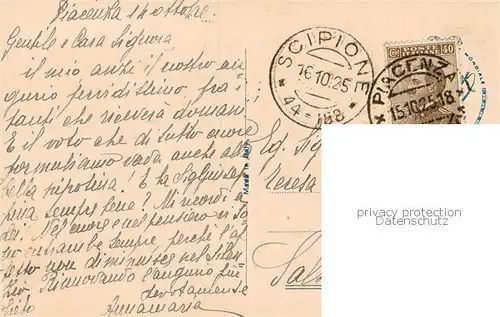 Piacenza 14 ottobre
Gentile e Cara Signora
il mio anzi il nostro au
gurio fervidissimo, fra i
tanti che riceverà domani.
È il voto che di tutto cuore
formuliamo vada anche alla
bella nipotina! E la Sig.
pina sempre bene? Mi ricordi a
Nel cuore e nel pensiero
entrambe sempre, perchè l'af
fetto non diminuisce nel silen
zio Rinnovando l'augurio più
lieto devotamente
Annamaria
SCIPIONE
16.10.25
44-188
POSTE ITALIANE
C. 40
PIACENZA
15.10.25.18
Made in Italy
Eg. Sig
Teresa
Sals
privacy protection
Datenschutz